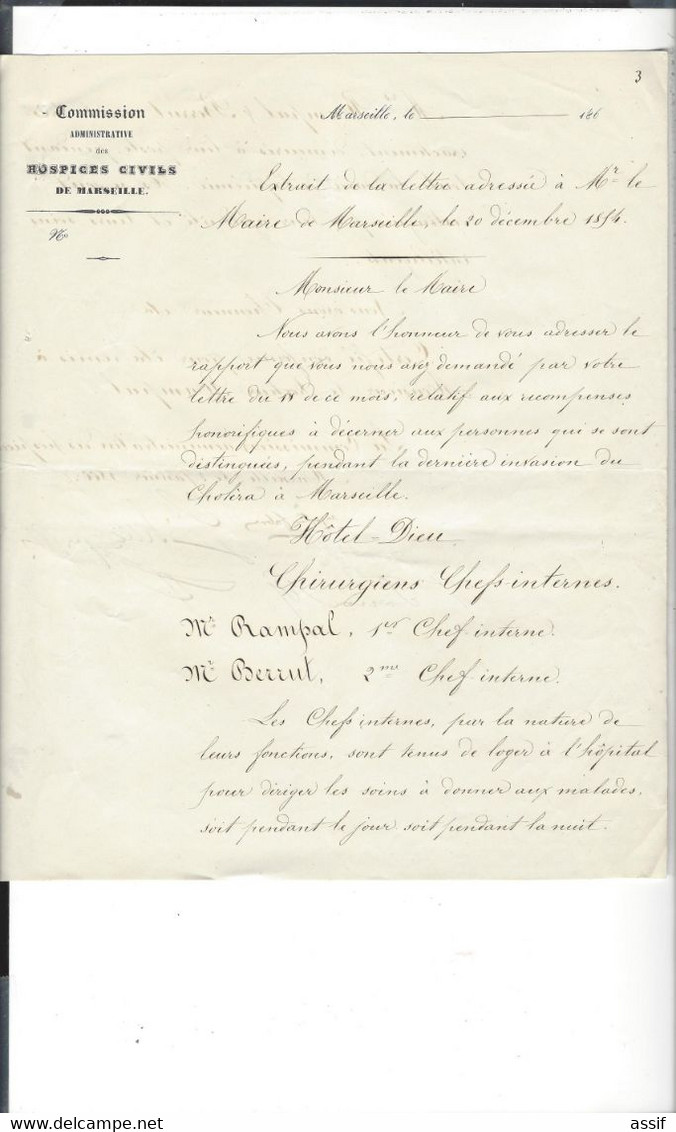 3
Commission
ADMINISTRATIVE
des
HOSPICES CIVILS
DE MARSEILLE.
No
Marseille, le 186
Extrait de la lettre adressée à Mr. le
Maire de Marseille, le 20 décembre 1854.
Monsieur le Maire
Nous avons l'honneur de vous adresser le
rapport que vous nous avez demandé par votre
lettre du 18 de ce mois, relatif aux recompenses
honorifiques à décerner aux personnes qui se sont
distinguées, pendant la dernière invasion du
Choléra à Marseille.
Hôtel-Dieu
Chirurgiens Chefs-internes.
Mr. Rampal, 1er Chef interne.
Mr. Berrut, 2me Chef interne.
Les Chefs internes, par la nature de
leurs fonctions, sont tenus de loger à l'hôpital
pour diriger les soins à donner aux malades,
soit pendant le jour soit pendant la nuit.
assif